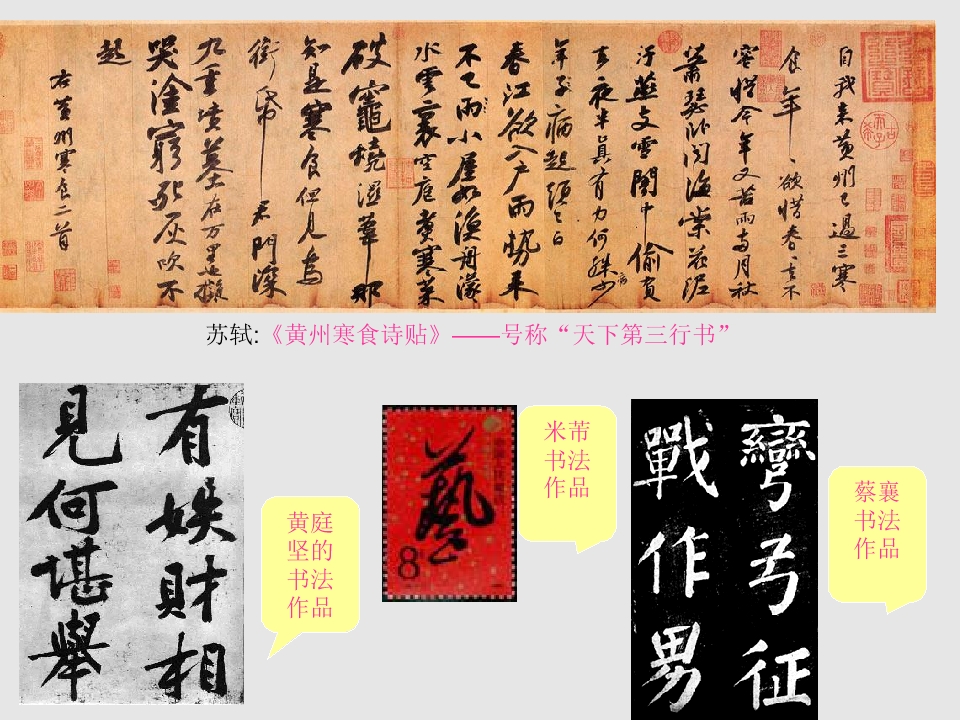 自我来黄州已過三寒
食年〻欲惜春〻去不
容惜今年又苦雨兩月秋
蕭瑟卧聞海棠花泥
汙燕支雪闇中偷負
去夜半真有力何殊少
年子病起頭已白
春江欲入户雨勢来
不已雨小屋如漁舟濛
水雲裏空庖煮寒菜
破竈燒濕葦那
知是寒食但見烏
銜帋君門深
九重墳墓在万里也擬
哭塗窮死灰吹不
起
右黄州寒食二首
苏轼:《黄州寒食诗贴》——号称“天下第三行书”
有娱財相
見何堪舉
黄庭
坚的
书法
作品
藝
8
米芾
书法
作品
彎弓征
戰作男
蔡襄
书法
作品